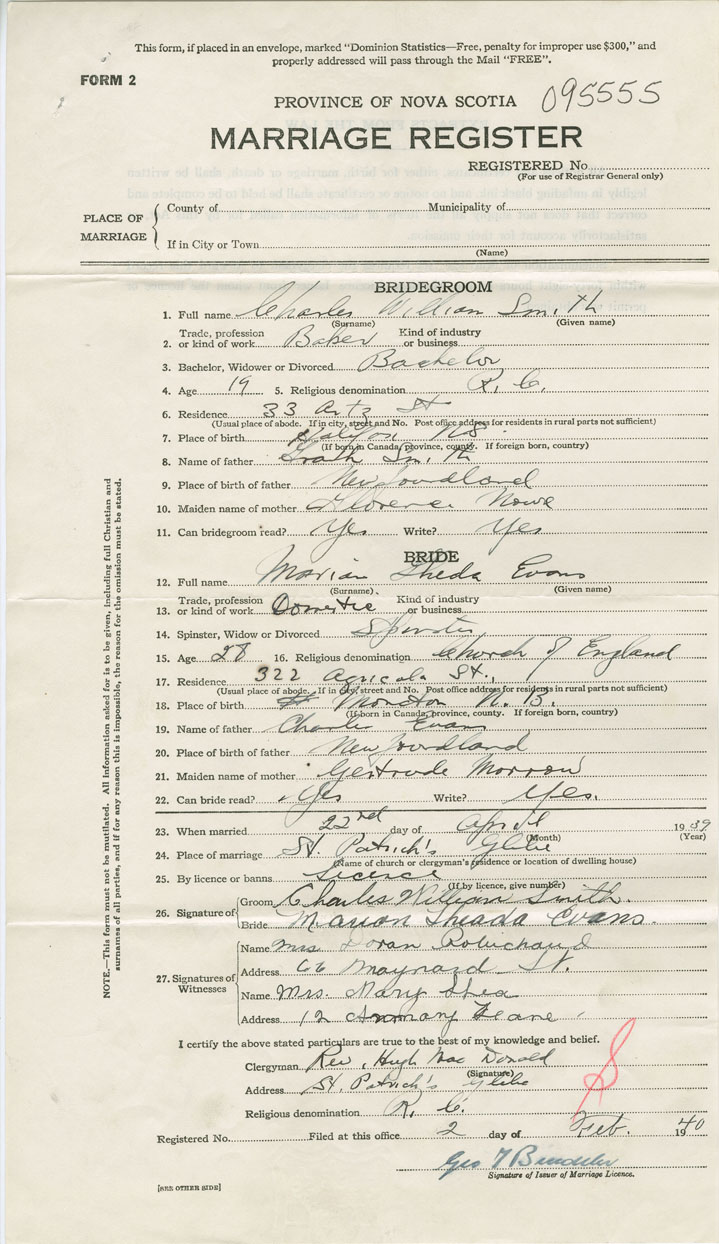 This form, if placed in an envelope, marked "Dominion Statistics—Free, penalty for improper use $300," and
properly addressed will pass through the Mail "FREE".
FORM 2
PROVINCE OF NOVA SCOTIA 095555
MARRIAGE REGISTER
REGISTERED No.
(For use of Registrar General only)
PLACE OF MARRIAGE
County of Municipality of
If in City or Town
(Name)
BRIDEGROOM
1. Full name Charles William Smith
(Surname) (Given name)
2. Trade, profession or kind of work Baker Kind of industry or business
3. Bachelor, Widower or Divorced Bachelor
4. Age 19 5. Religious denomination R. C.
6. Residence 33 Artz St
(Usual place of abode. If in city, street and No. Post office address for residents in rural parts not sufficient)
7. Place of birth Halifax NS
(If born in Canada, province, county. If foreign born, country)
8. Name of father Smith
9. Place of birth of father Newfoundland
10. Maiden name of mother Florence Nowe
11. Can bridegroom read? Yes Write? Yes
BRIDE
12. Full name Marian Theda Evans
(Surname). (Given name)
13. Trade, profession or kind of work Domestic Kind of industry or business
14. Spinster, Widow or Divorced Spinster
15. Age 28 16. Religious denomination Church of England
17. Residence 322 Agricola St.,
(Usual place of abode. If in city, street and No. Post office address for residents in rural parts not sufficient)
18. Place of birth Moncton N. B.
(If born in Canada, province, county. If foreign born, country)
19. Name of father Charles Evans
20. Place of birth of father Newfoundland
21. Maiden name of mother Gertrude Morrow
22. Can bride read? Yes Write? Yes.
23. When married 22nd day of April 1939
(Month) (Year)
24. Place of marriage St Patrick's Glebe
(Name of church or clergyman's residence or location of dwelling house)
25. By licence or banns Licence
(If by licence, give number)
26. Signature of
Groom Charles William Smith.
Bride Marion Theada Evans.
27. Signatures of Witnesses
Name Mrs Robichaud
Address 66 Maynard St.
Name Mrs. Mary Shea
Address 12 Lane
I certify the above stated particulars are true to the best of my knowledge and belief.
Clergyman Rev. Hugh Mac Donald
(Signature)
Address St. Patrick's Glebe
Religious denomination R. C.
Registered No. Filed at this office 2 day of Feb. 1940
Geo
Signature of Issuer of Marriage Licence.
[SEE OTHER SIDE]
NOTE.—This form must not be mutilated. All information asked for is to be given, including full Christian and
surnames of all parties, and if for any reason this is impossible, the reason for the omission must be stated.